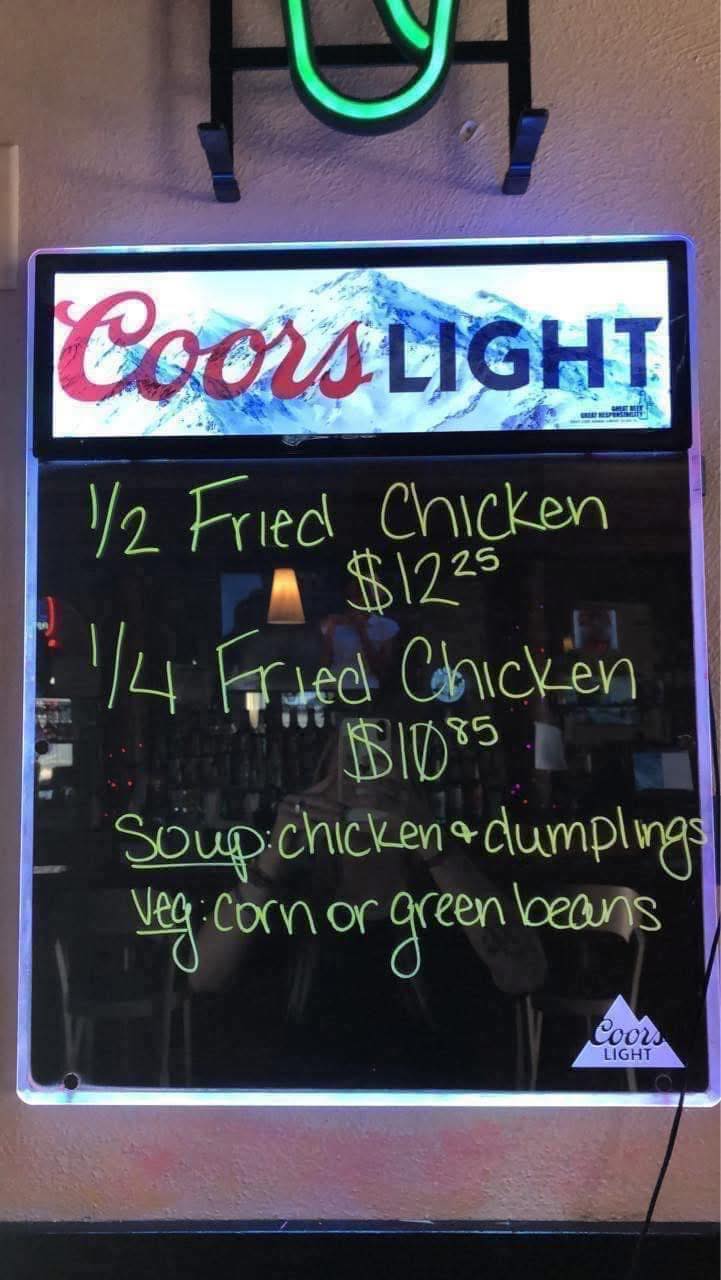 Coors LIGHT
GREAT BEER
GREAT RESPONSIBILITY
1/2 Fried Chicken
$12 25
1/4 Fried Chicken
$10 85
Soup: chicken & dumplings
Veg: corn or green beans
Coors
LIGHT